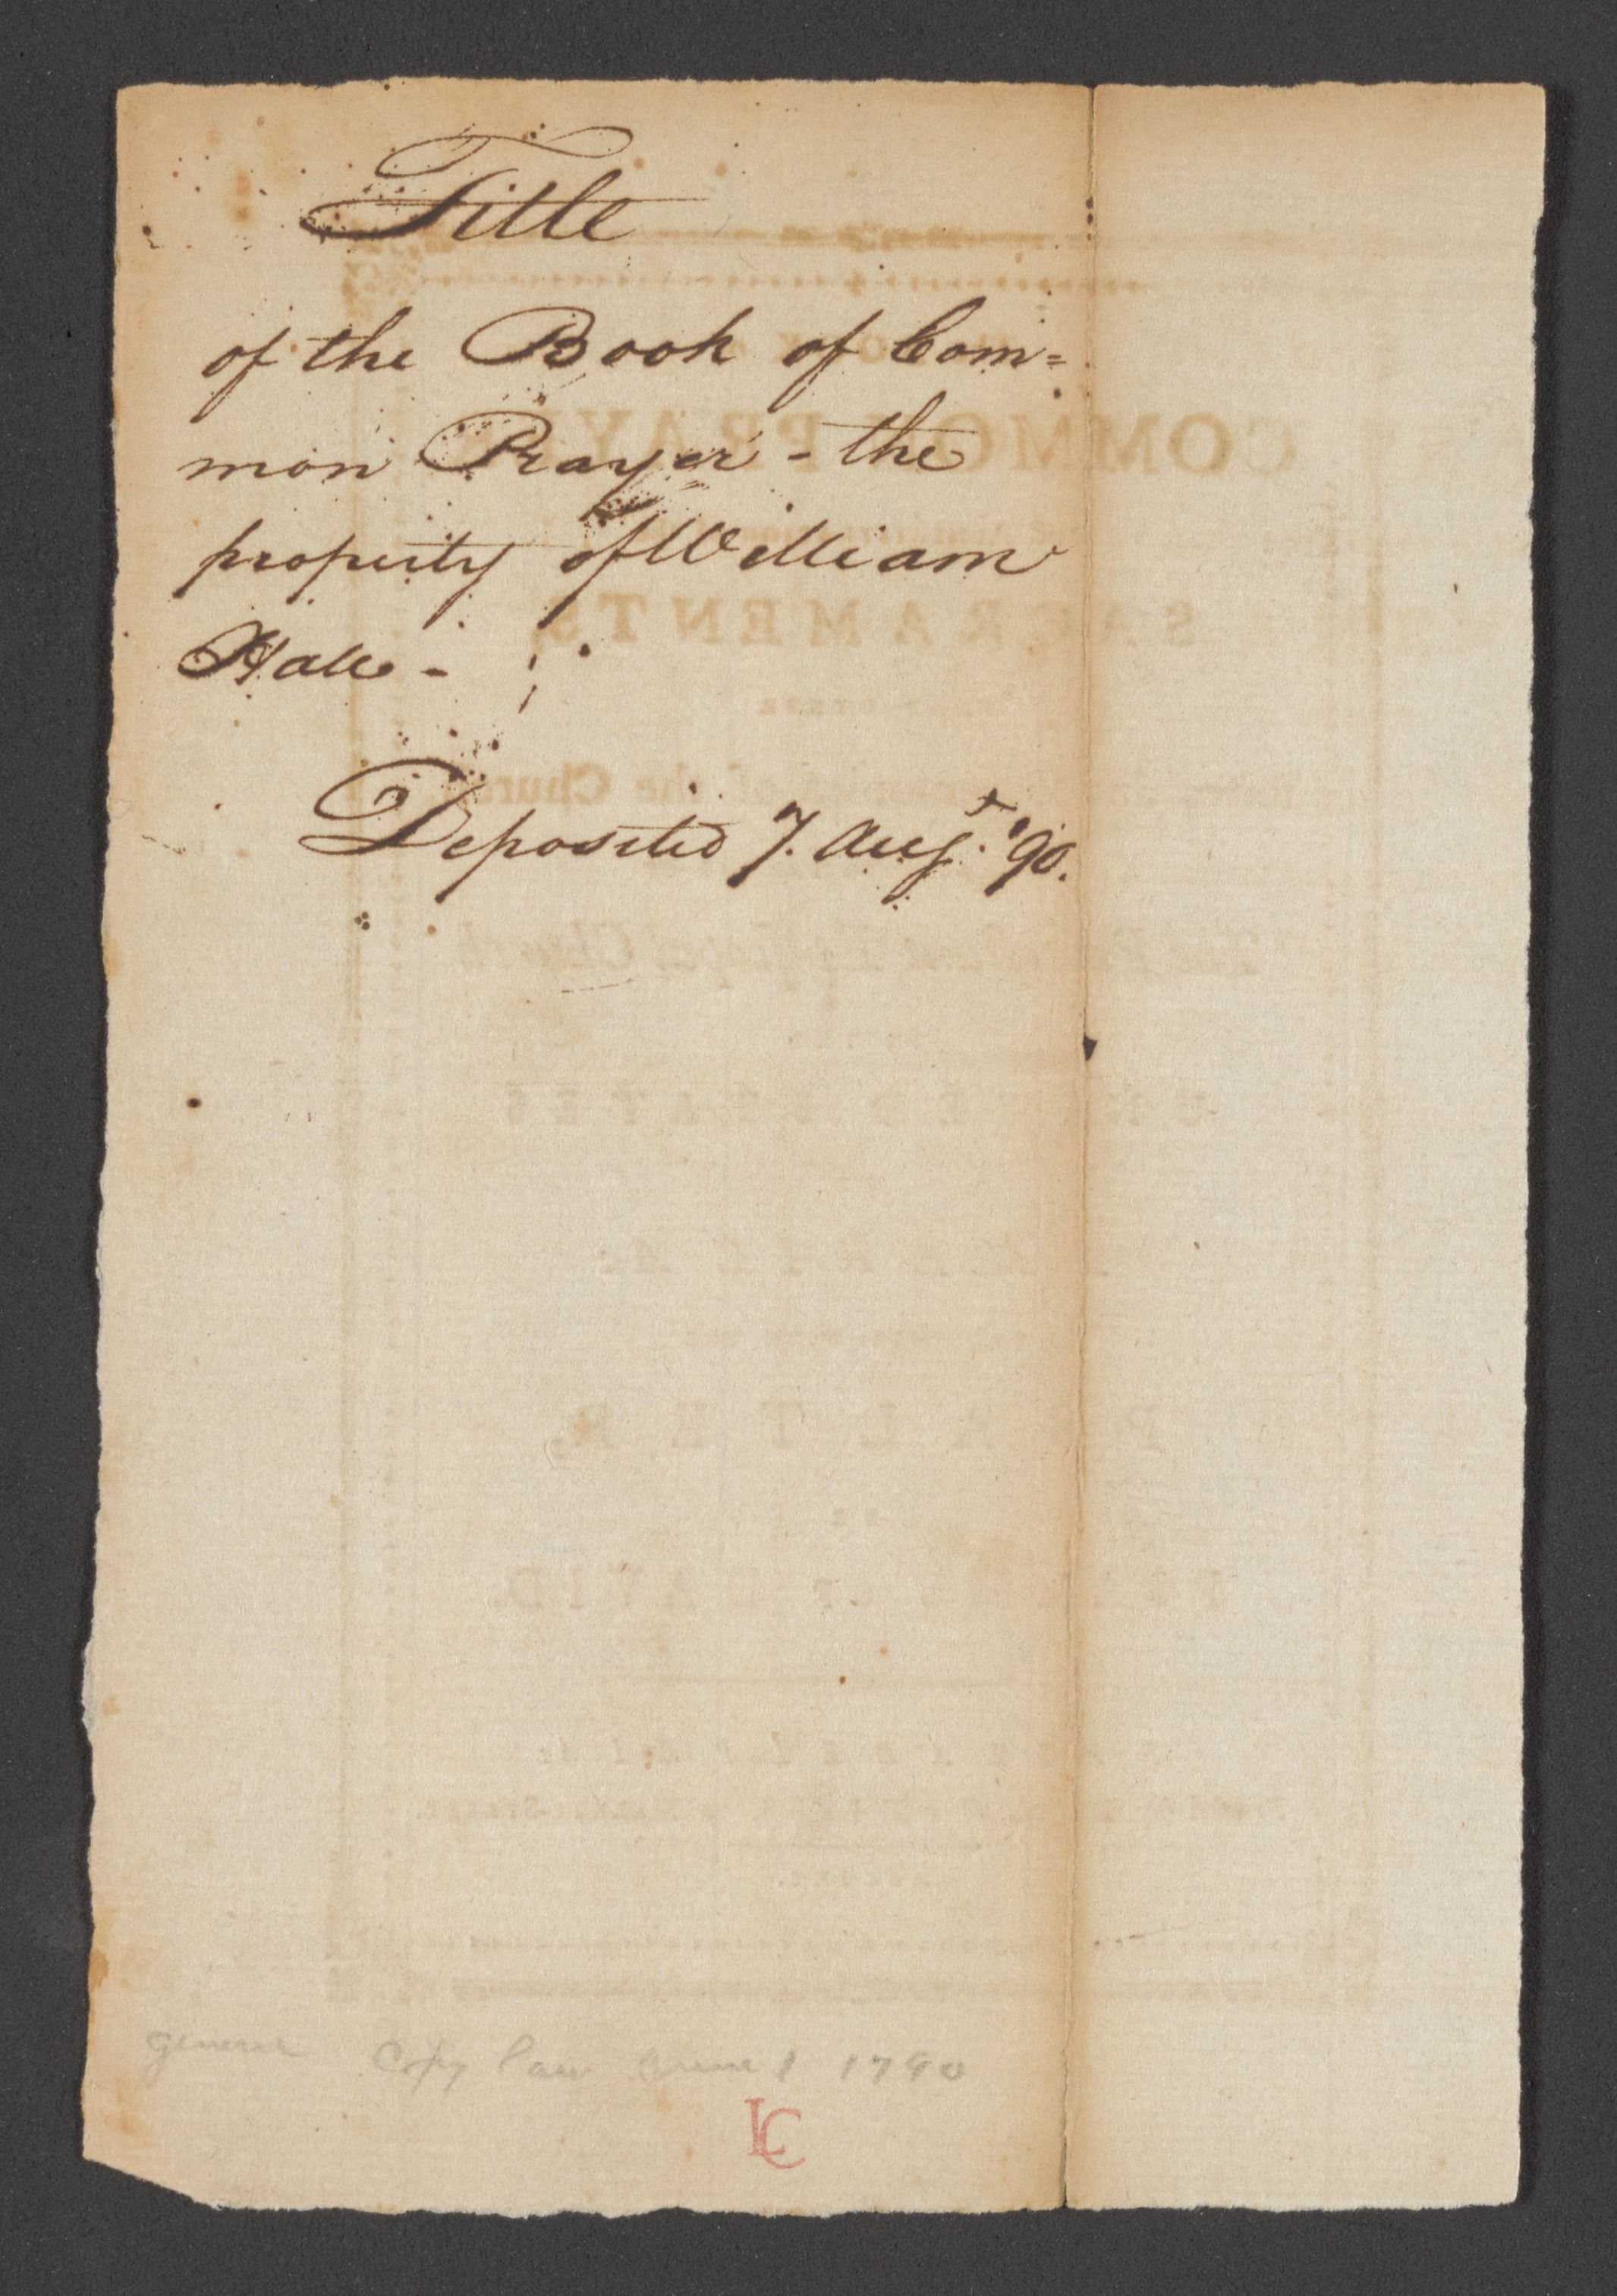 Title
of the Book of Com=
mon Prayer - the
property of William
Hall -
Deposited 7. Augt. '90.
general Copy law June 1 1790
LC